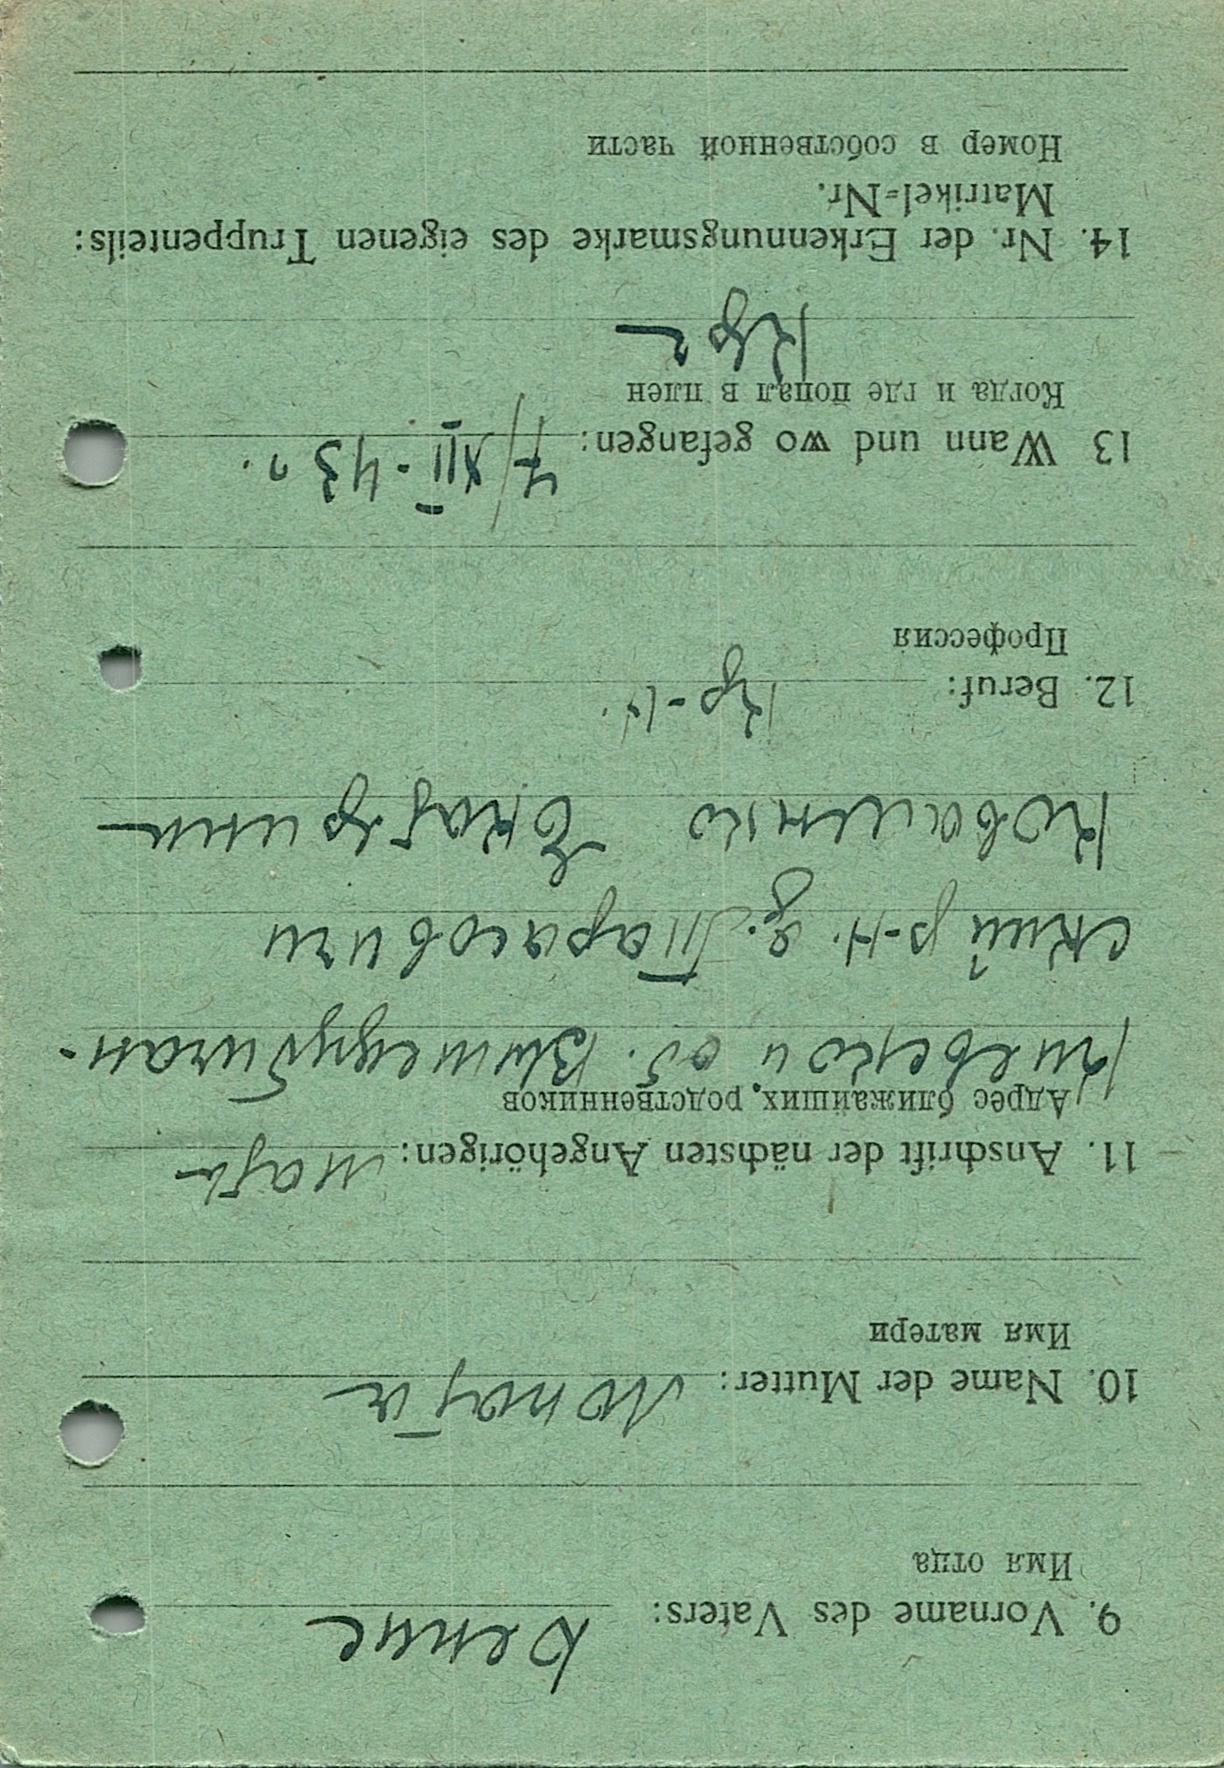 9. Vorname des Vaters:
Имя отца
10. Name der Mutter:
Имя матери
11. Anschrift der nächsten Angehörigen: мать
Адрес ближайших, родственников
Киевской об.
ский р-н. д. Тарасовичи
Екатерина
12. Beruf: кр-н.
Профессия
13 Wann und wo gefangen: 7/XII-43 г.
Когда и где попал в плен
14. Nr. der Erkennungsmarke des eigenen Truppenteils:
Matrikel=Nr.
Номер в собственной части